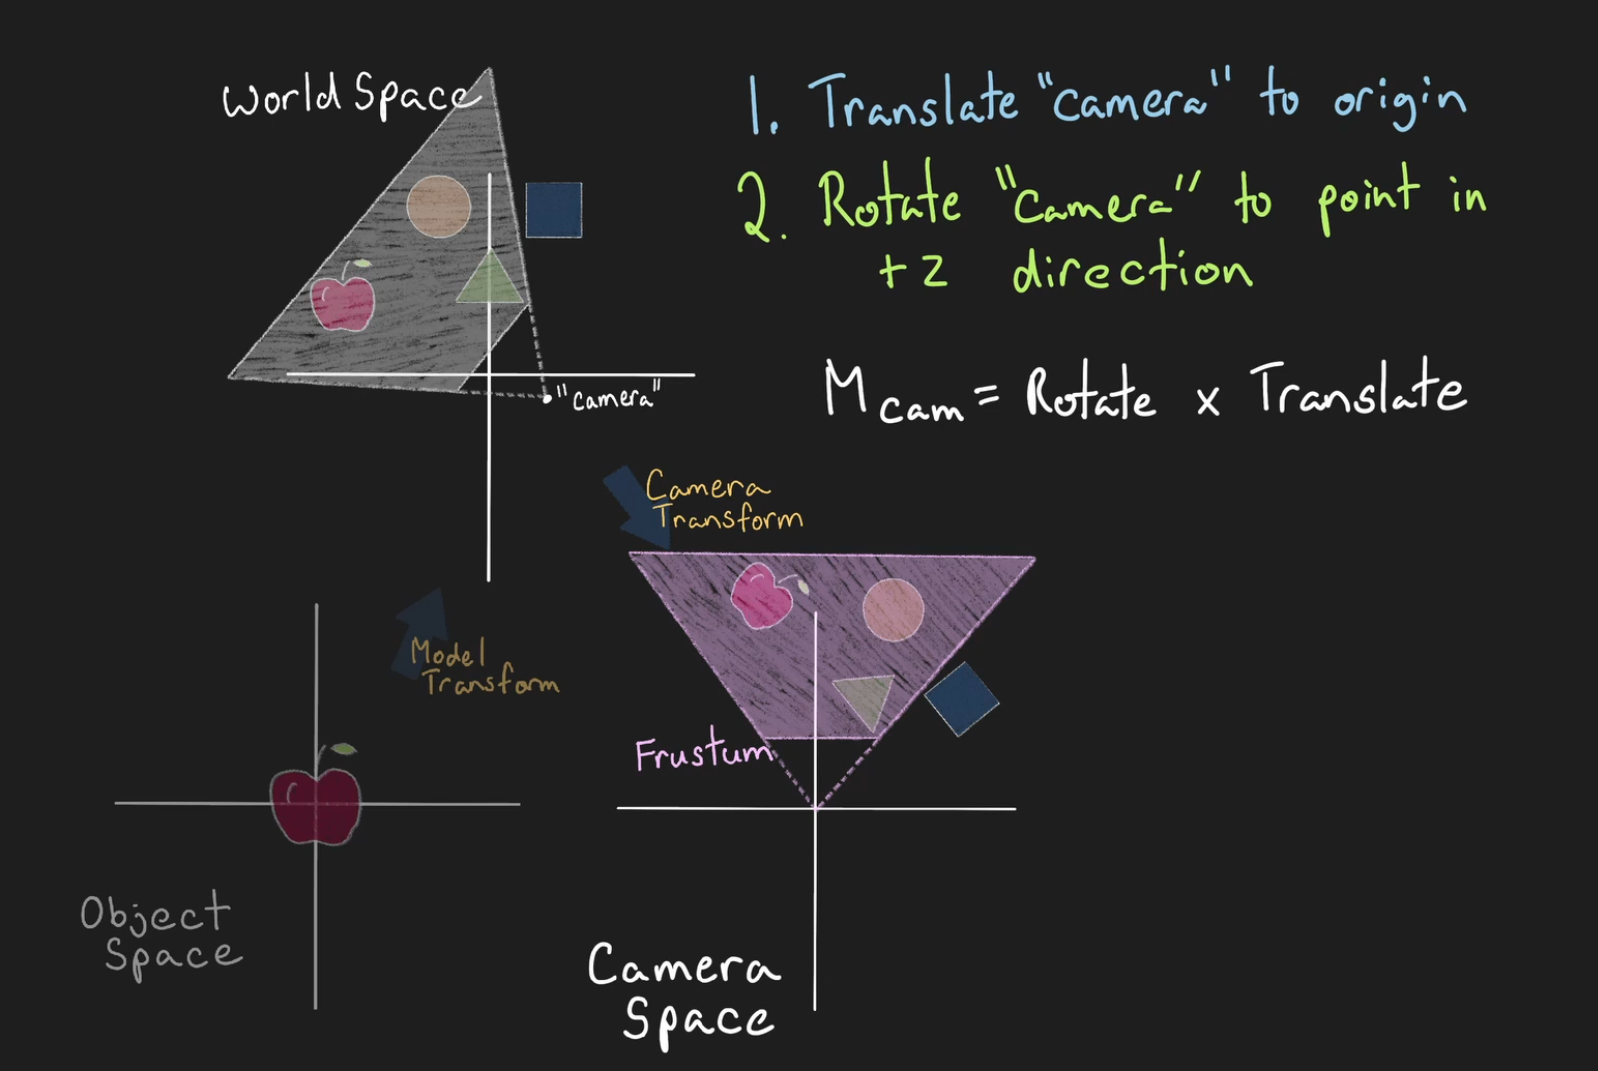 World Space
1. Translate "camera" to origin
2. Rotate "camera" to point in
+z direction
Mcam = Rotate x Translate
"camera"
Camera
Transform
Model
Transform
Frustum
Object
Space
Camera
Space